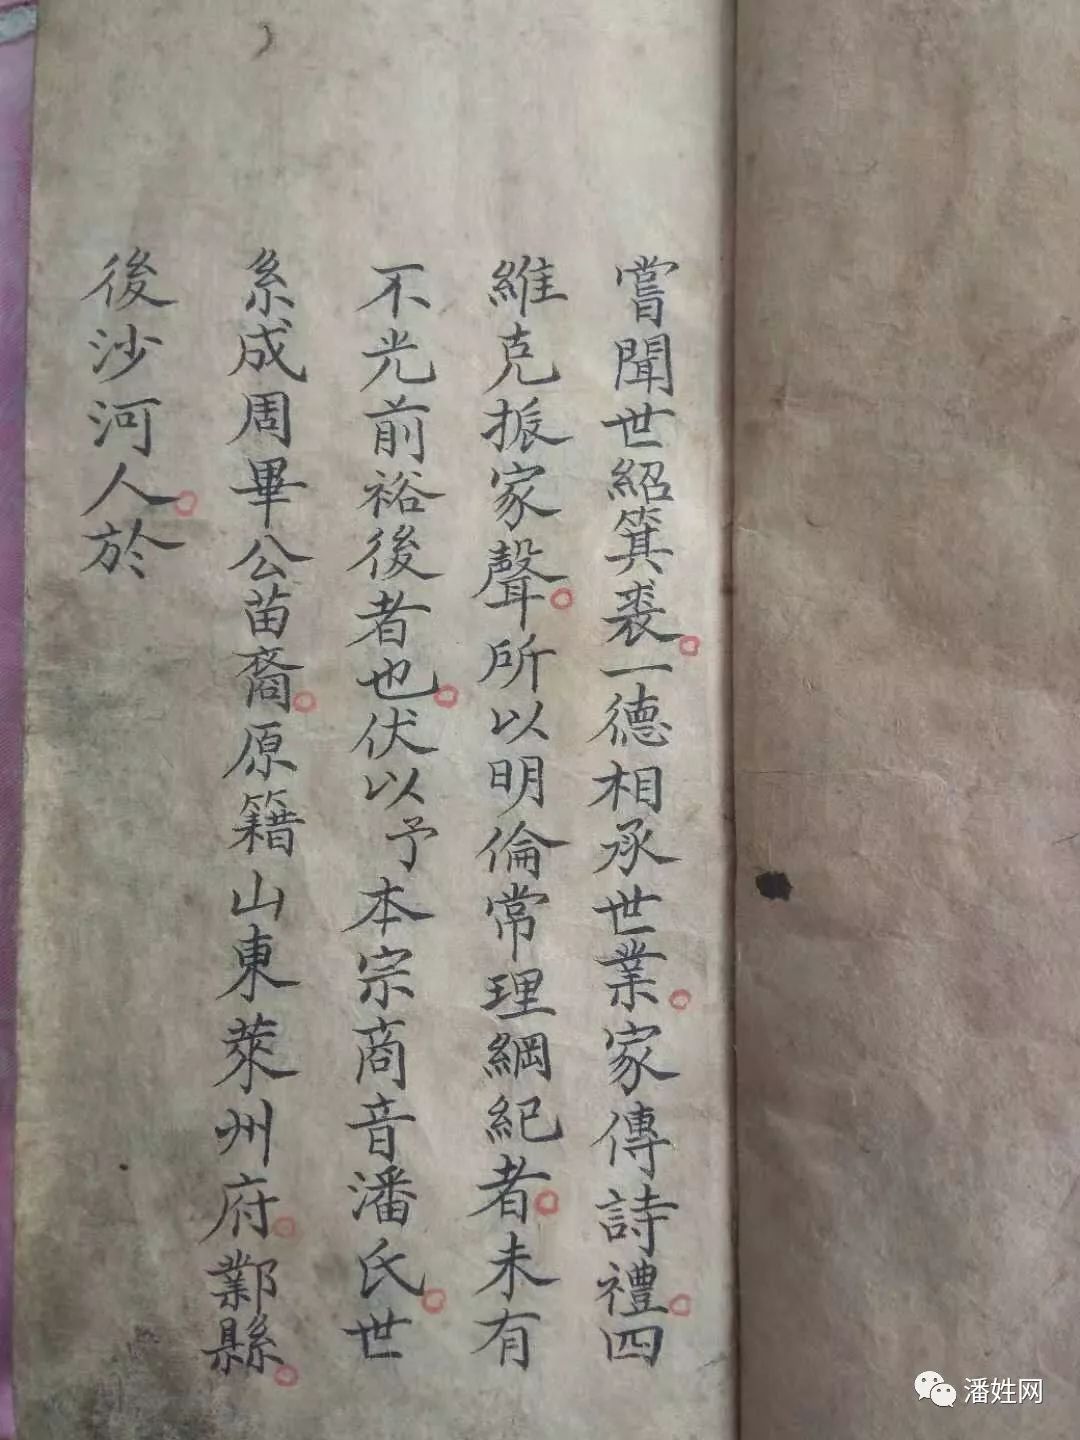 嘗聞世紹箕裘。一德相承世業。家傳詩禮。四
維克振家聲。所以明倫常理綱紀者。未有
不光前裕後者也。伏以予本宗商音潘氏。世
系成周畢公苗裔。原籍山東萊州府。鄴縣。
後沙河人。於
潘姓网